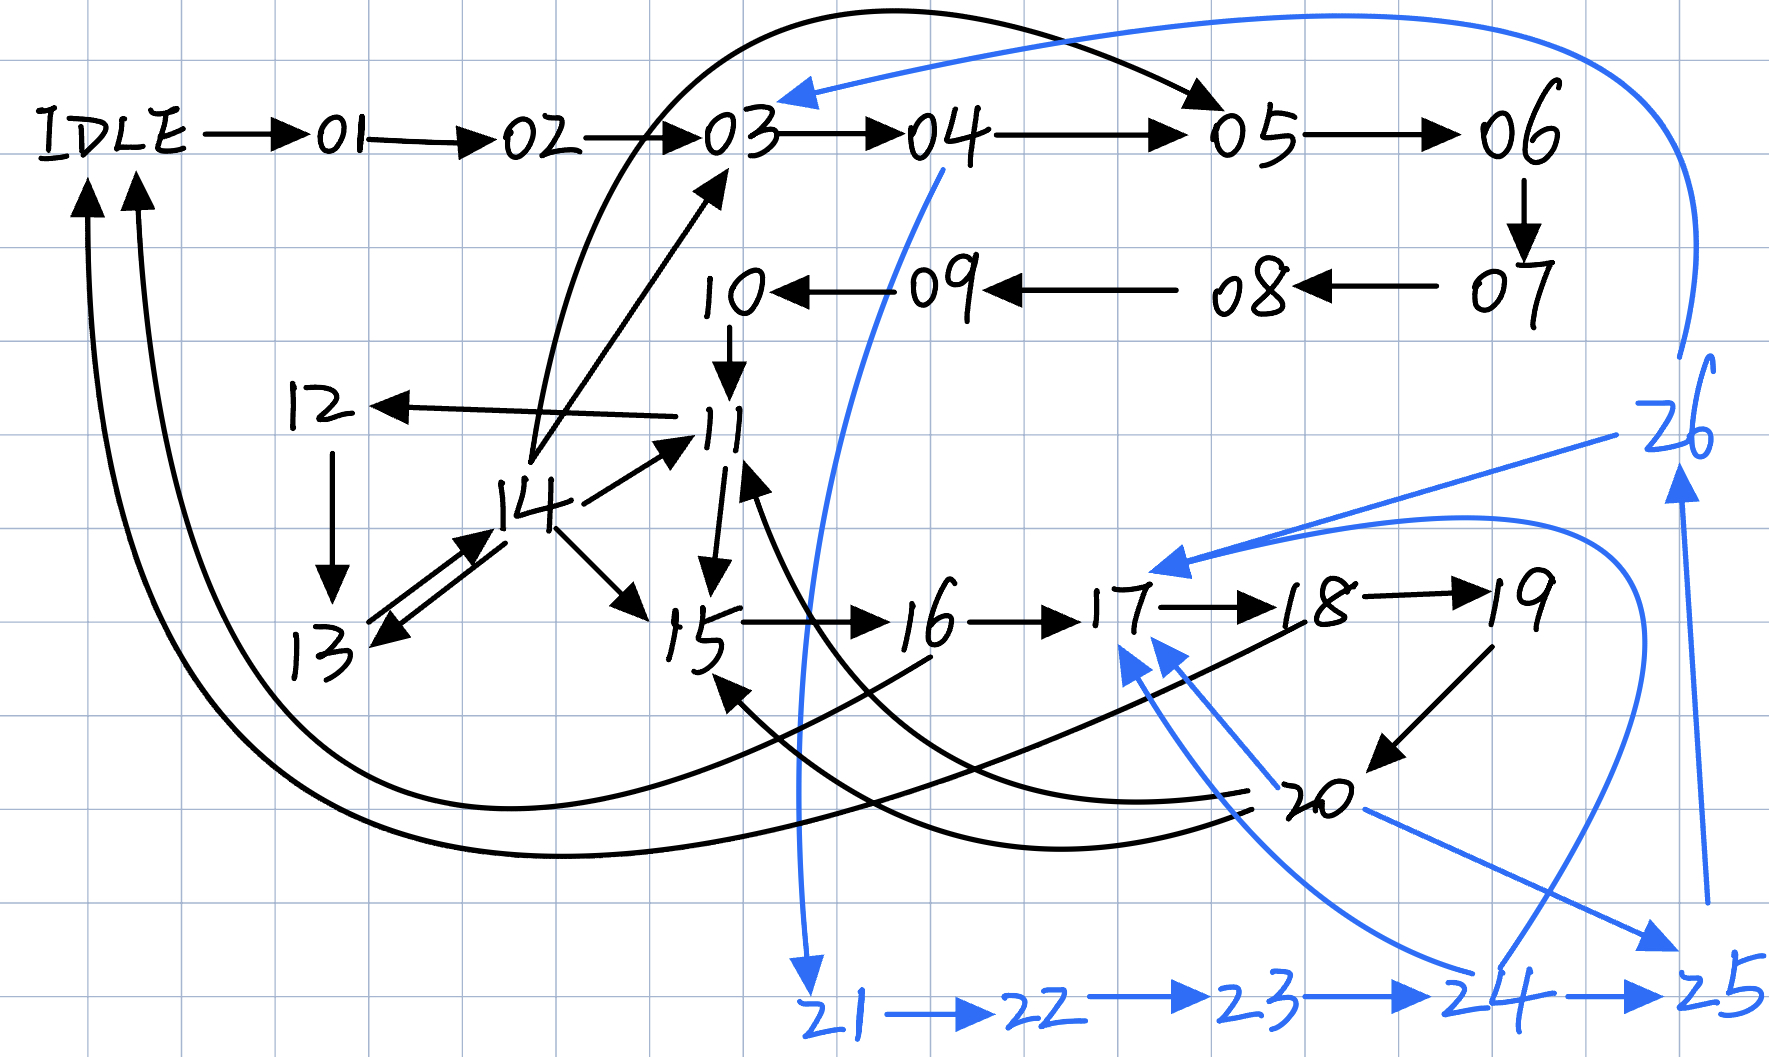 IDLE 01 02 03 04 05 06
10 09 08 07
12 11 26
14
13 15 16 17 18 19
20
21 22 23 24 25